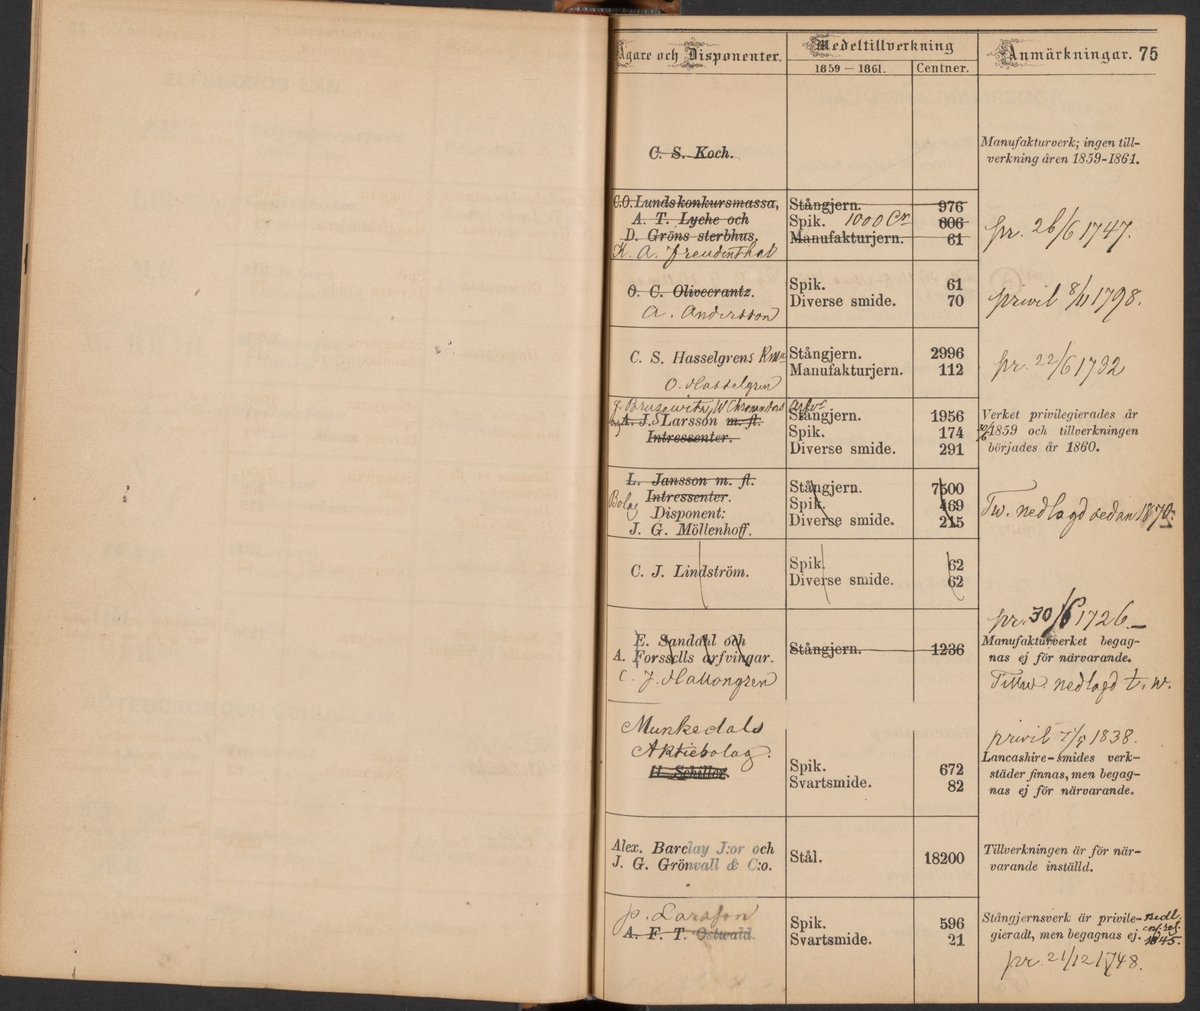 Ägare och Disponenter.
Medeltillverkning
1859 — 1861.
Centner.
Anmärkningar. 75
C. S. Koch.
Manufakturverk; ingen till-
verkning åren 1859-1861.
C.O. Lunds konkursmassa,
A. T. Lyche och
D. Gröns sterbhus.
K. A. Freudenthal
Stångjern. 976
Spik. 1000 Cr 806
Manufakturjern. 61
pr. 26/6 1747.
O. C. Olivecrantz.
A. Andersson
Spik. 61
Diverse smide. 70
privil 8/11 1798.
C. S. Hasselgrens
O. Hasselgren
Stångjern. 2996
Manufakturjern. 112
pr. 22/6 1732
J. Brusewitz, W
A. J. S Larsson m. fl.
Intressenter.
Stångjern. 1956
Spik. 174
Diverse smide. 291
Verket privilegierades år
1859 och tillverkningen
börjades år 1860.
L. Jansson m. fl.
Bolag Intressenter.
Disponent:
J. G. Möllenhoff.
Stångjern. 7500
Spik. 469
Diverse smide. 215
Tw. nedlagd sedan 1870.
C. J. Lindström.
Spik. 62
Diverse smide. 62
E. Sandahl och
A. Forssells arfvingar.
C. J. Hallongren
Stångjern. 1236
pr. 30/6 1726.
Manufakturverket begag-
nas ej för närvarande.
Tillw. nedlagd t. w.
Munkedals
Aktiebolag.
H. Schiller.
Spik. 672
Svartsmide. 82
privil 1838.
Lancashire-smides verk-
städer finnas, men begag-
nas ej för närvarande.
Alex. Barclay J:or och
J. G. Grönvall & C:o.
Stål. 18200
Tillverkningen är för när-
varande inställd.
P. Larsson
A. F. T. Ostwald.
Spik. 596
Svartsmide. 21
Stångjernsverk är privile-
gieradt, men begagnas ej.
nedl.
1845.
pr. 21/12 1748.